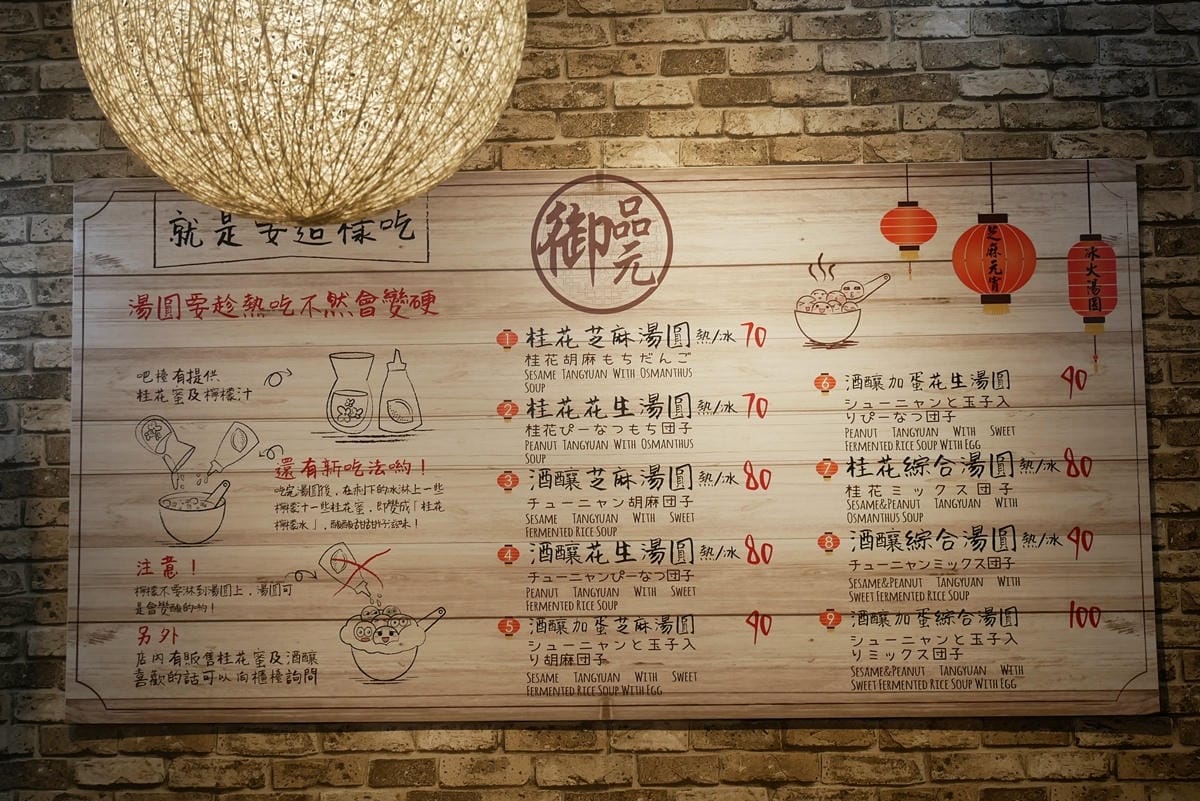 就是要這樣吃
湯圓要趁熱吃不然會變硬
吧檯有提供
桂花蜜及檸檬汁
還有新吃法喲！
吃完湯圓後，在剩下的冰淋上一些
檸檬汁一些桂花蜜，即變成「桂花
檸檬冰」，酸酸甜甜好滋味！
注意！
檸檬不要淋到湯圓上，湯圓可
是會變酸的喲！
另外
店內有販售桂花蜜及酒釀
喜歡的話可以向櫃檯詢問
御品元
1 桂花芝麻湯圓 熱/冰 70
桂花胡麻もちだんご
Sesame Tangyuan With Osmanthus
Soup
2 桂花花生湯圓 熱/冰 70
桂花ぴーなつもち団子
Peanut Tangyuan With Osmanthus
Soup
3 酒釀芝麻湯圓 熱/冰 80
チューニャン胡麻団子
Sesame Tangyuan With Sweet
Fermented Rice Soup
4 酒釀花生湯圓 熱/冰 80
チューニャンぴーなつ団子
Peanut Tangyuan With Sweet
Fermented Rice Soup
5 酒釀加蛋芝麻湯圓 90
シューニャンと玉子入
り胡麻団子
Sesame Tangyuan With Sweet
Fermented Rice Soup With Egg
芝麻元宵
冰火湯圓
6 酒釀加蛋花生湯圓 90
シューニャンと玉子入
りぴーなつ団子
Peanut Tangyuan With Sweet
Fermented Rice Soup With Egg
7 桂花綜合湯圓 熱/冰 80
桂花ミックス団子
Sesame&Peanut Tangyuan With
Osmanthus Soup
8 酒釀綜合湯圓 熱/冰 90
チューニャンミックス団子
Sesame&Peanut Tangyuan With
Sweet Fermented Rice Soup
9 酒釀加蛋綜合湯圓 100
シューニャンと玉子入
りミックス団子
Sesame&Peanut Tangyuan With
Sweet Fermented Rice Soup With Egg